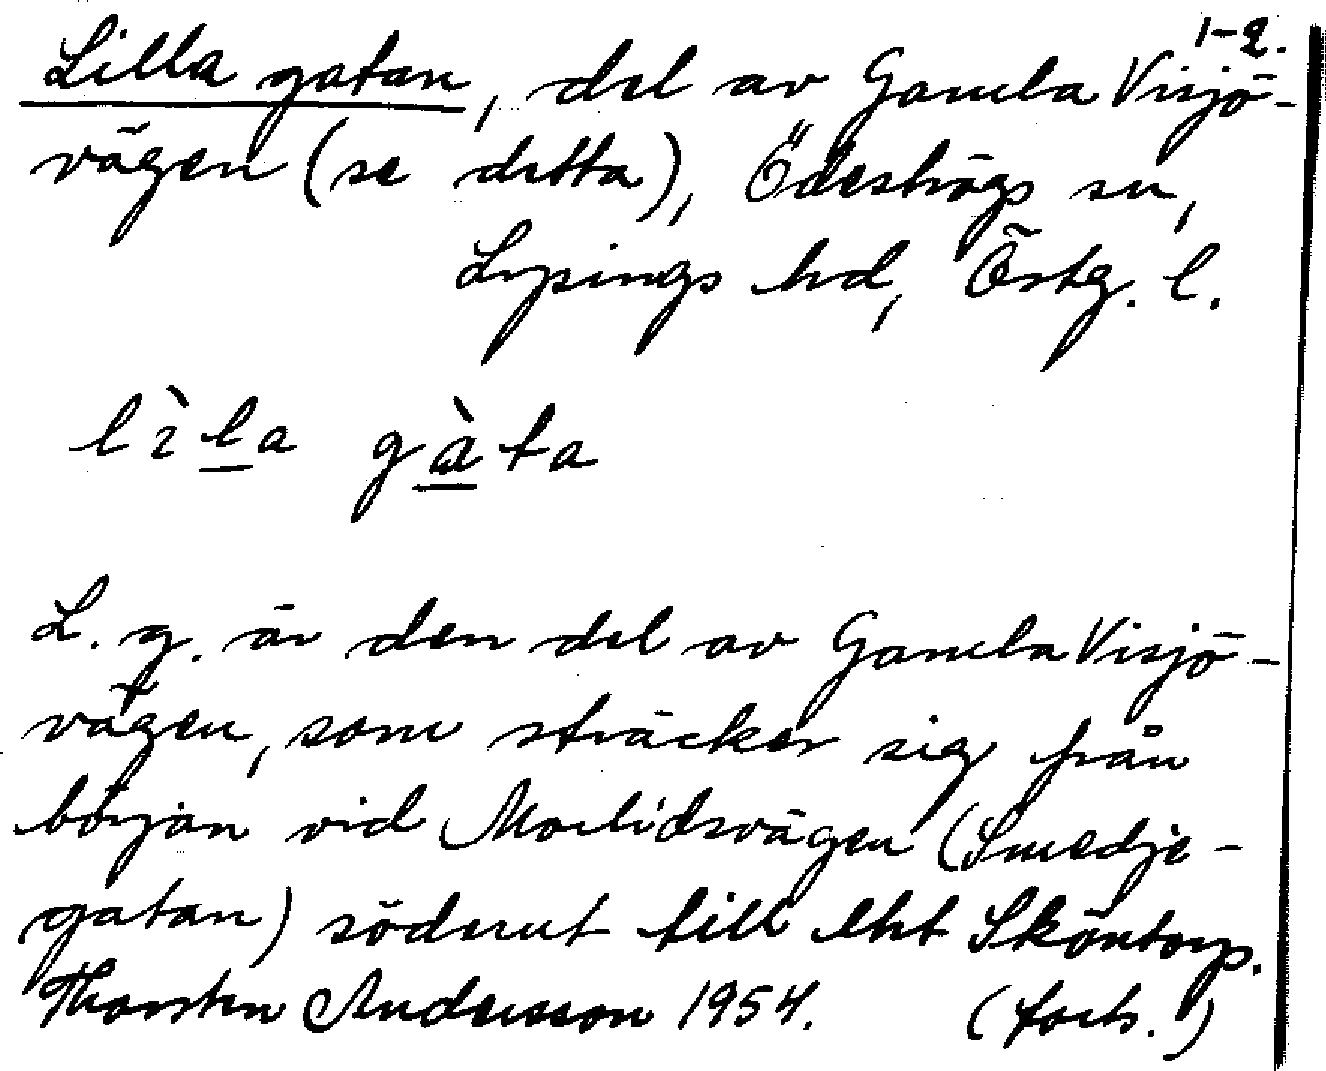 1-2.
Lilla gatan, del av Gamla Visjö-
vägen (se detta), Ödeshögs sn,
Lysings hd, Östg. l.
lìla gàta
L. g. är den del av Gamla Visjö-
vägen, som sträcker sig från
början vid Morlidsvägen (Smedje-
gatan) söderut till lht Sköntorp.
Thorsten Andersson 1954. (forts.)